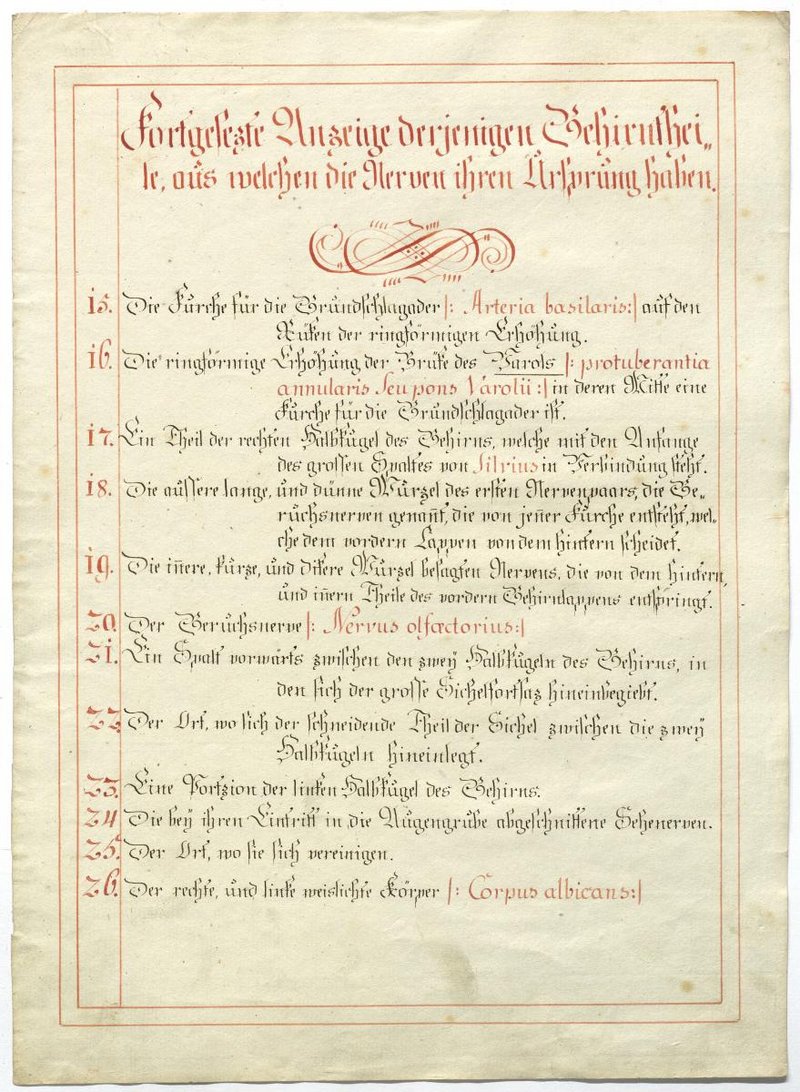 Fortgesezte Anzeige derjenigen Gehirnthei„
le, aus welchen die Nerven ihren Ursprung haben.
15. Die Furche für die Grundschlagader |: Arteria basilaris:| auf den
Rüken der ringförmigen Erhöhung.
16. Die ringförmige Erhöhung der Brüke des Varols |: protuberantia
annularis seu pons Varolii :| in deren Mitte eine
Furche für die Grundschlagader ist.
17. Ein Theil der rechten Halbkugel des Gehirns, welche mit den Anfange
des grossen Spaltes von Silvius in Verbindung steht.
18. Die aussere lange, und dünne Wurzel des ersten Nervenpaars, die Ge„
ruchsnerven genañt, die von jener Furche entsteht, wel„
che dem vordern Lappen von dem hintern scheidet.
19. Die iñere, kurze, und dikere Wurzel besagten Nervens, die von dem hintern,
und iñern Theile des vordern Gehirnlappens entspringt.
20. Der Geruchsnerve |: Nervus olfactorius:|
21. Ein Spalt vorwärts zwischen den zweÿ Halbkugeln des Gehirns, in
den sich der grosse Sichelfortsaz hineinbegiebt.
22. Der Ort, wo sich der schneidende Theil der Sichel zwischen die zweÿ
Halbkugeln hineinlegt.
23. Eine Portzion der linken Halbkugel des Gehirns.
24 Die beÿ ihren Eintritt in die Augengrube abgeschnittene Sehenerven.
25. Der Ort, wo sie sich vereinigen.
26. Der rechte, und linke weislichte Körper |: Corpus albicans:|